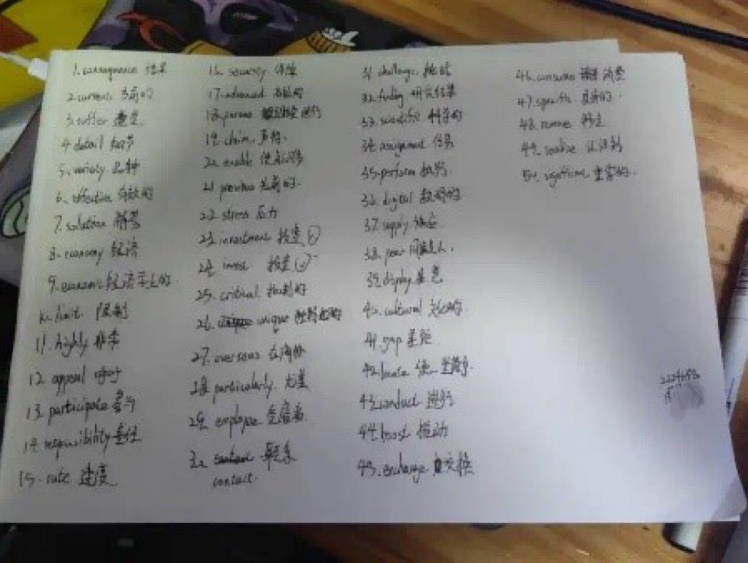 1. consequence 结果
2. current 当前的
3. suffer 遭受
4. detail 细节
5. variety 品种
6. effective 有效的
7. solution
8. economy 经济
9. economic 经济学上的
10. limit 限制
11. highly 非常
12. appeal 呼吁
13. participate 参与
14. responsibility 责任
15. rate 速度
16. security 保障
17. advanced
18. pursue
19. claim 声称
20. enable 使能够
21. previous 先前的
22. stress 压力
23. investment 投资
24. invest 投资
25. critical 批判的
26. unique
27. overseas 在海外
28. particularly 尤其
29. employee 受雇者
30. 联系
contact
31. challenge 挑战
32. finding 研究结果
33. scientific 科学的
34. assignment 任务
35. perform 执行
36. digital 数码的
37. supply 供应
38. peer
39. display 展览
40. cultural 文化的
41. gap 差距
42. locate
43. conduct 进行
44. boost 推动
45. exchange 交换
46. consume 消费
47. specific
48. remove 移走
49. realise 认识到
50. significant 重要的